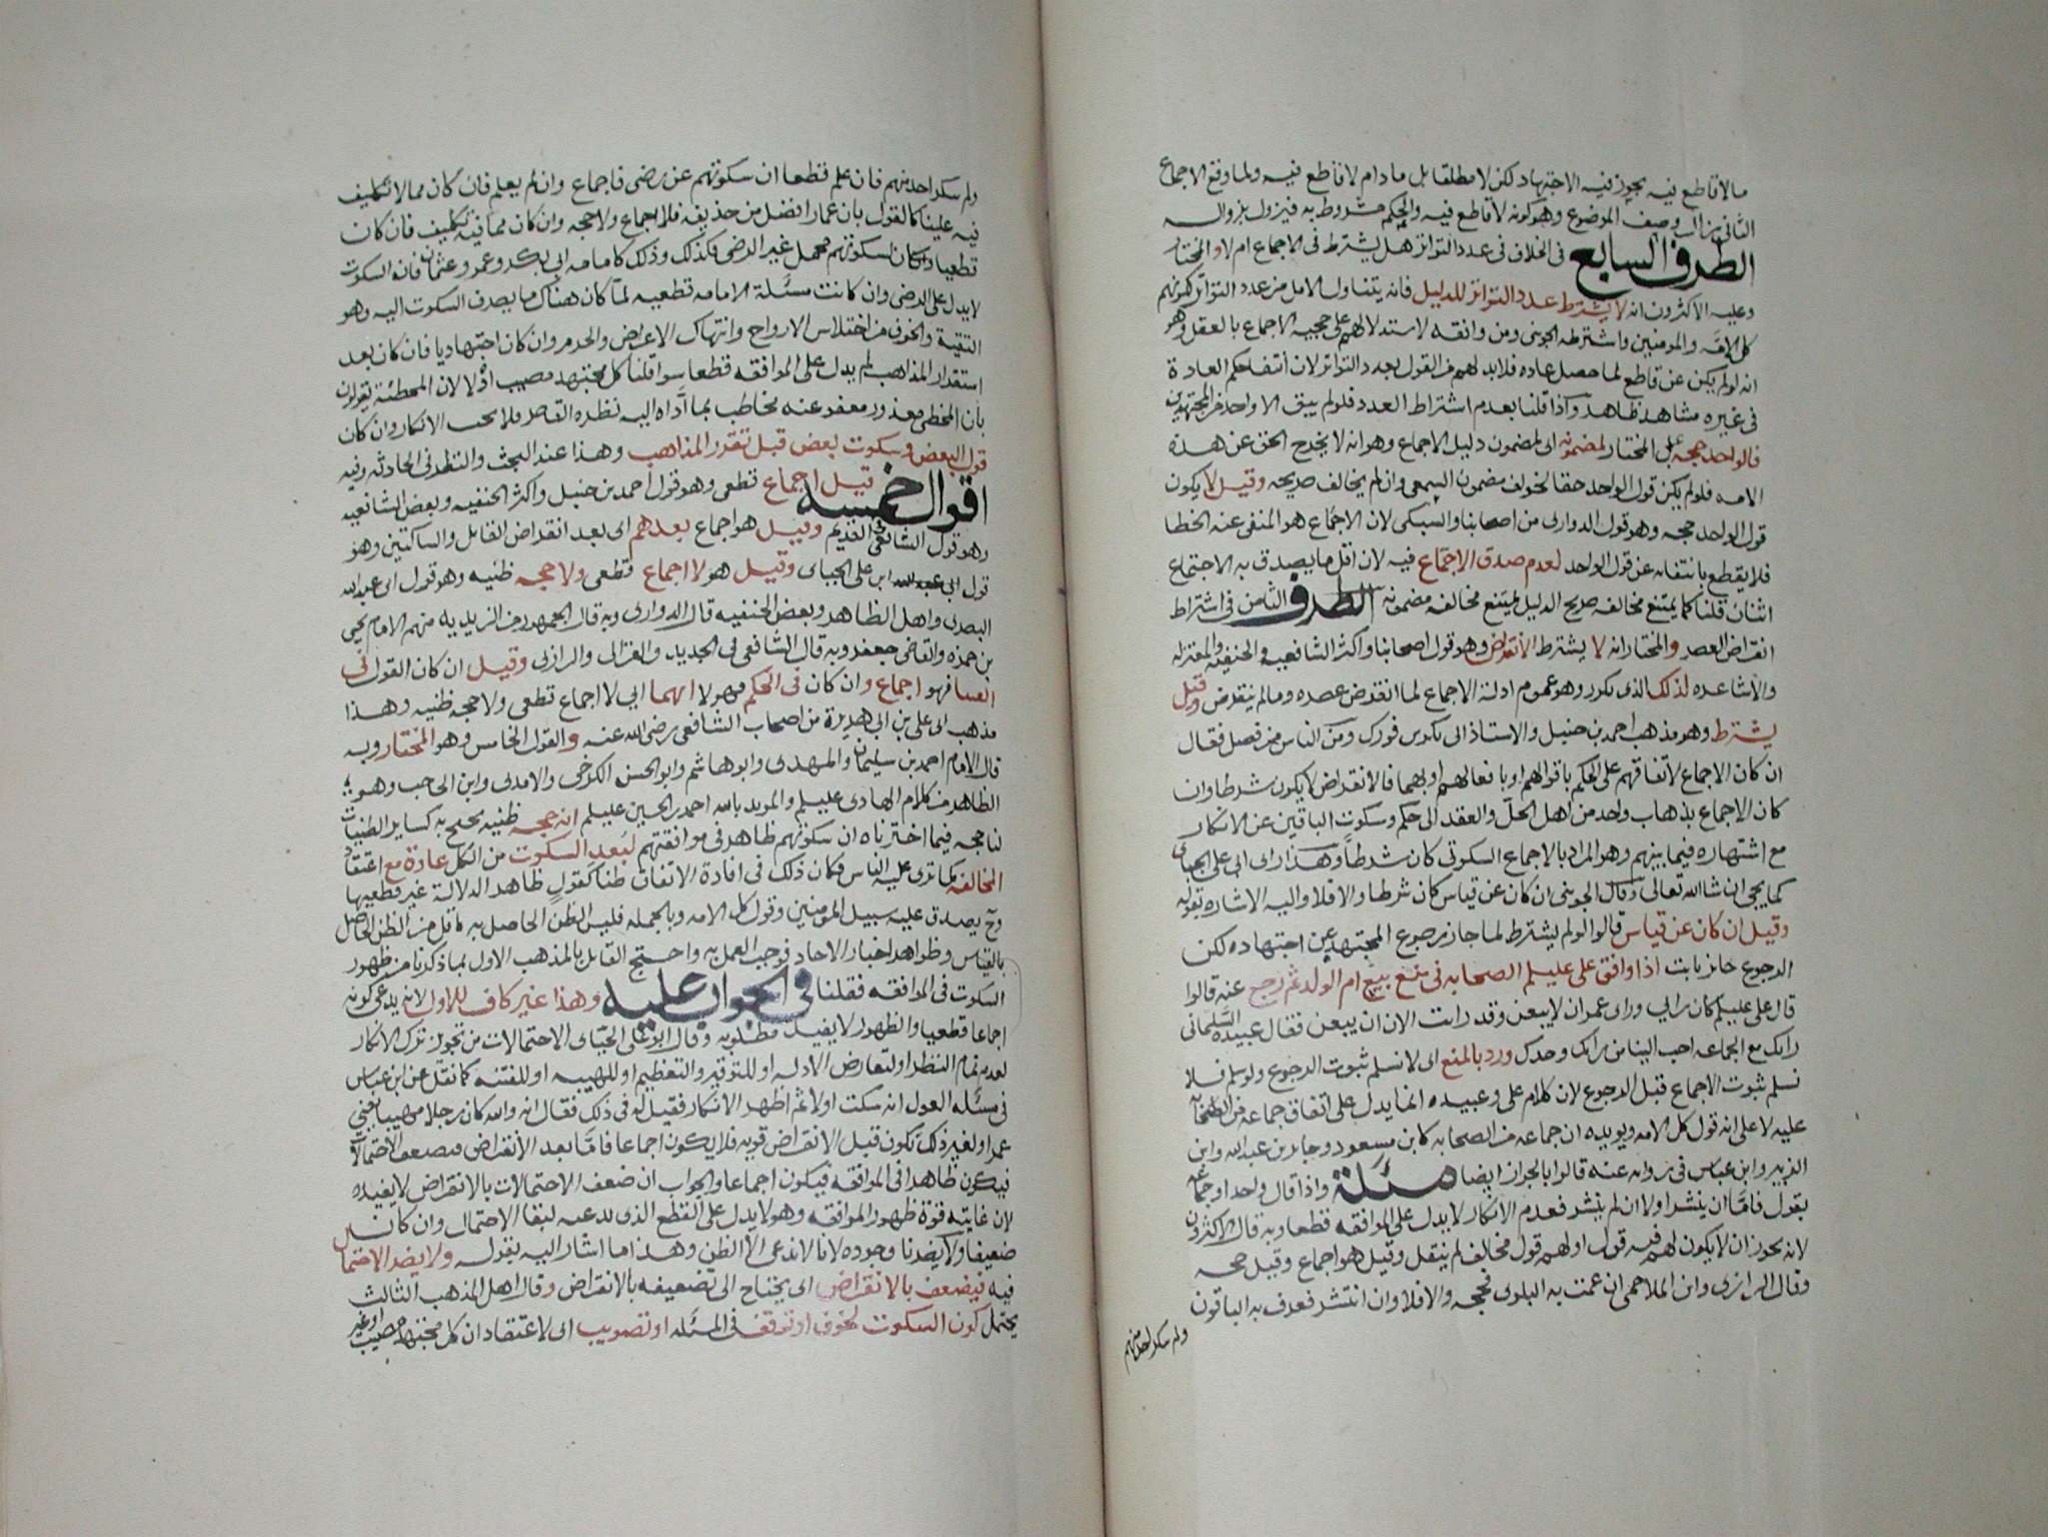 مالا قاطع فيه يجوز فيه الاجتهاد لكن لا مطلقا بل ما دام لا قاطع فيه ولما وقع الاجماع
الثانى زال وصف الموضوع وهو كونه لا قاطع فيه والحكم مشروط به فيزول بزواله
الطرف السابع فى الخلاف فى عدد التواتر هل يشترط فى الاجماع ام لا والمختار
وعليه الاكثرون انه لا يشترط عدد التواتر للدليل فانه يتناول الاقل من عدد التواتر لكونهم
كل الامة والمومنين واشترطه الجوينى ومن وافقه لاستدلالهم على حجية الاجماع بالعقل وهو
انه لو لم يكن عن قاطع لما حصل عاده فلا بد لهم من القول بعدد التواتر لان انتفا حكم العادة
فى غيره مشاهد ظاهر واذا قلنا بعدم اشتراط العدد فلو لم يبق الا واحد من المجتهدين
فالواحد حجه على المختار لمضمونه اى لمضمون دليل الاجماع وهو انه لا يخرج الحق عن هذه
الامه فلو لم يكن قول الواحد حقا لخولف مضمون السمعى وان لم يخالف صريحه وقيل لا يكون
قول الواحد حجه وهو قول الدوارى من اصحابنا والسبكى لان الاجماع هو المنفى عنه الخطا
فلا يقطع بانتفائه عن قول الواحد لعدم صدق الاجماع فيه لان اقل ما يصدق به الاجتماع
اثنان قلنا كما يمتنع مخالفه صريح الدليل يمتنع مخالفه مضمونه الطرف الثامن فى اشتراط
انقراض العصر والمختار انه لا يشترط الانقراض وهو قول اصحابنا واكثر الشافعيه والحنفيه والمعتزله
والاشاعره لذلك الذى تكرر وهو عموم ادلة الاجماع لما انقرض عصره وما لم ينقرض وقيل
يشترط وهو مذهب احمد بن حنبل والاستاذ ابى بكر بن فورك ومن الناس من فصل فقال
ان كان الاجماع لاتفاقهم على الحكم باقوالهم او بافعالهم او بهما فالانقراض لا يكون شرطا وان
كان الاجماع بذهاب واحد من اهل الحل والعقد الى حكم وسكوت الباقين عن الانكار
مع اشتهاره فيما بينهم وهو المراد بالاجماع السكوتى كان شرطا وهذا راى ابى على الجباى
كما يجى ان شا الله تعالى وقال الجوينى ان كان عن قياس كان شرطا والا فلا واليه الاشاره بقوله
وقيل ان كان عن قياس قالوا لو لم يشترط لما جاز رجوع المجتهد عن اجتهاده لكن
الرجوع جائز بابت اذا وافق على عليلم الصحابه فى منع بيع ام الولد ثم رجع عنه قالوا
قال على عليلم كان رايى وراى عمر ان لا يبعن وقد رايت الان ان يبعن فقال عبيده السلمانى
رايك مع الجماعه احب الينا من رايك وحدك ورد بالمنع اى لا نسلم ثبوت الرجوع ولو سلم فلا
نسلم ثبوت الاجماع قبل الرجوع لان كلام على وعبيده انما يدل على اتفاق جماعه من الصحابه
عليه لا على انه قول كل الامه ويويده ان جماعه من الصحابه كابن مسعود وجابر بن عبد الله وابن
الزبير وابن عباس فى روايه عنه قالوا بالجواز ايضا مسئلة واذا قال واحد او جماعه
بقول فاما ان ينتشر او لا ان لم ينتشر فعدم الانكار لا يدل على الموافقه قطعا وبه قال الاكثرون
لانه يجوز ان لا يكون لهم فيه قول او لهم قول مخالف لم ينقل وقيل هو اجماع وقيل حجه
وقال الرازى وابن الملاحمى ان عمت به البلوى فحجه والا فلا وان انتشر فعرف به الباقون
ولم ينكر احد منهم
ولم ينكر احد منهم فان علم قطعا ان سكوتهم عن رضى فاجماع وان لم يعلم فان كان مما لا تكليف
فيه علينا كالقول بان عمارا افضل من حذيفه فلا اجماع ولا حجه وان كان مما فيه تكليف فان كان
قطعيا وكان لسكوتهم محمل غير الرضى فكذلك وذلك كامامه ابى بكر وعمر وعثمان فانه السكوت
لا يدل على الرضى وان كانت مسئلة الامامه قطعيه لما كان هناك ما يصرف السكوت اليه وهو
التقية والخوف من اختلاس الارواح وانتهاك الاعراض والحرم وان كان اجتهاديا فان كان بعد
استقرار المذاهب لم يدل على الموافقه قطعا سوا قلنا كل مجتهد مصيب او لا لان المخطئة يقولون
بان المخطى معذور معفو عنه مخاطب بما اداه اليه نظره القاصر فلا يجب الانكار وان كان
قول البعض وسكوت بعض قبل تقرر المذاهب وهذا عند البحث والنظر فى الحادثه وفيه
اقوال خمسه قيل اجماع قطعى وهو قول احمد بن حنبل واكثر الحنفيه وبعض الشافعيه
وهو قول الشافعى القديم وقيل هو اجماع بعدهم اى بعد انقراض القائل والساكتين وهو
قول ابى على الجباى وقيل هو لا اجماع قطعى ولا حجه ظنيه وهو قول ابى عبد الله
البصرى واهل الظاهر وبعض الحنفيه قال الدوارى وبه قال الجمهور من الزيديه منهم الامام يحيى
بن حمزه والقاضى جعفر وبه قال الشافعى فى الجديد والغزالى والرازى وقيل ان كان القول فى
الفتيا فهو اجماع وان كان فى الحكم فهو لا ايهما اى لا اجماع قطعى ولا حجه ظنيه وهذا
مذهب ابى على بن ابى هريرة من اصحاب الشافعى رضى الله عنه والقول الخامس وهو المختار وبه
قال الامام احمد بن سليمان والمهدى وابو هاشم وابو الحسن الكرخى والامدى وابن الحاجب وهو
الظاهر من كلام الهادى عليلم والمويد بالله احمد بن الحسين عليلم انه حجه ظنيه يحتج به كساير الظنيات
لنا حجه فيما اخترناه ان سكوتهم ظاهر فى موافقتهم لبعد السكوت من الكل عادة مع اعتقاد
المخالفه كما ترى عليه الناس فكان ذلك فى افادة الاتفاق ظنا كقول ظاهر الدلالة غير قطعيها
وح يصدق عليه سبيل المومنين وقول كل الامه وبالجمله فليس الظن الحاصل به باقل من الظن الحاصل
بالقياس وظواهر اخبار الاحاد فوجب العمل به واحتج القائل بالمذهب الاول بما ذكرنا من ظهور
السكوت فى الموافقه فقلنا فى الجواب عليه وهذا غير كاف للاول لانه يدعى كونه
اجماعا قطعيا والظهور لا يفيد مطلوبه وقال ابو على الجباى الاحتمالات من تجويز ترك الانكار
لعدم تمام النظر او لتعارض الادله او للتوقير والتعظيم او للهيبه او للفتنه كما نقل عن ابن عباس
فى مسئله العول انه سكت اولا ثم اظهر الانكار فقيل له فى ذلك فقال انه والله كان رجلا مهيبا يعنى
عمر او لغير ذلك تكون قبل الانقراض قويه فلا يكون اجماعا فاما بعد الانقراض فتضعف الاحتمالات
فيكون ظاهرا فى الموافقه فيكون اجماعا والجواب ان ضعف الاحتمالات بالانقراض لا يفيده
لان غايته قوة ظهور الموافقه وهو لا يدل على القطع الذى يدعيه لبقا الاحتمال وان كان
ضعيفا ولا يضرنا وجوده لانا لا ندعى الا الظن وهذا ما اشار اليه بقوله ولا يضر الاحتمال
فيه فيضعف بالانقراض اى يحتاج الى تضعيفه بالانقراض وقال اهل المذهب الثالث
يحتمل كون السكوت لخوف او توقف فى المسئله او تصويب اى لاعتقاد ان كل مجتهد مصيب او غير